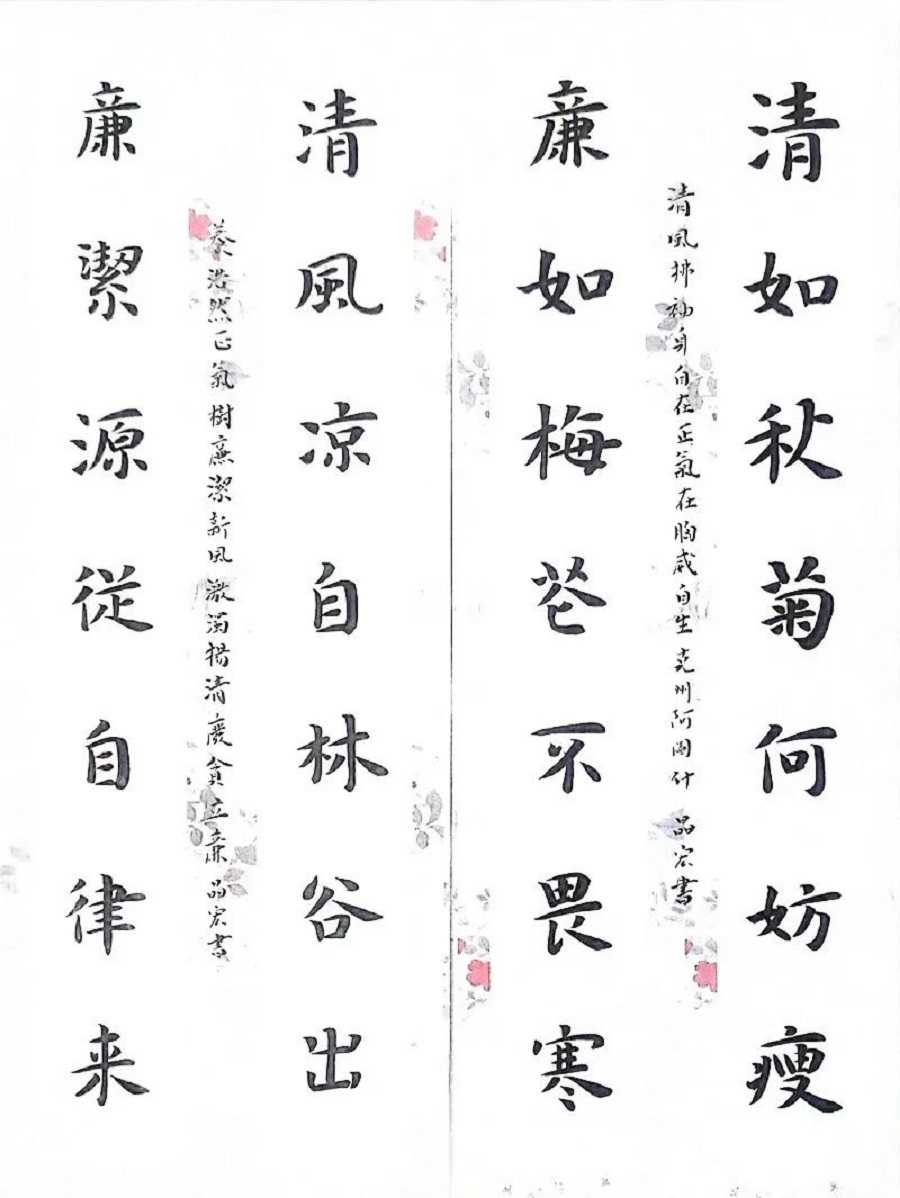 清如秋菊何妨瘦
清風拂袖身自在正氣在胸威自生克州阿圖什 品宏書
廉如梅花不畏寒
清風凉自林谷出
養浩然正氣樹廉潔新風激濁揚清廢貪立廉品宏書
廉潔源從自律来